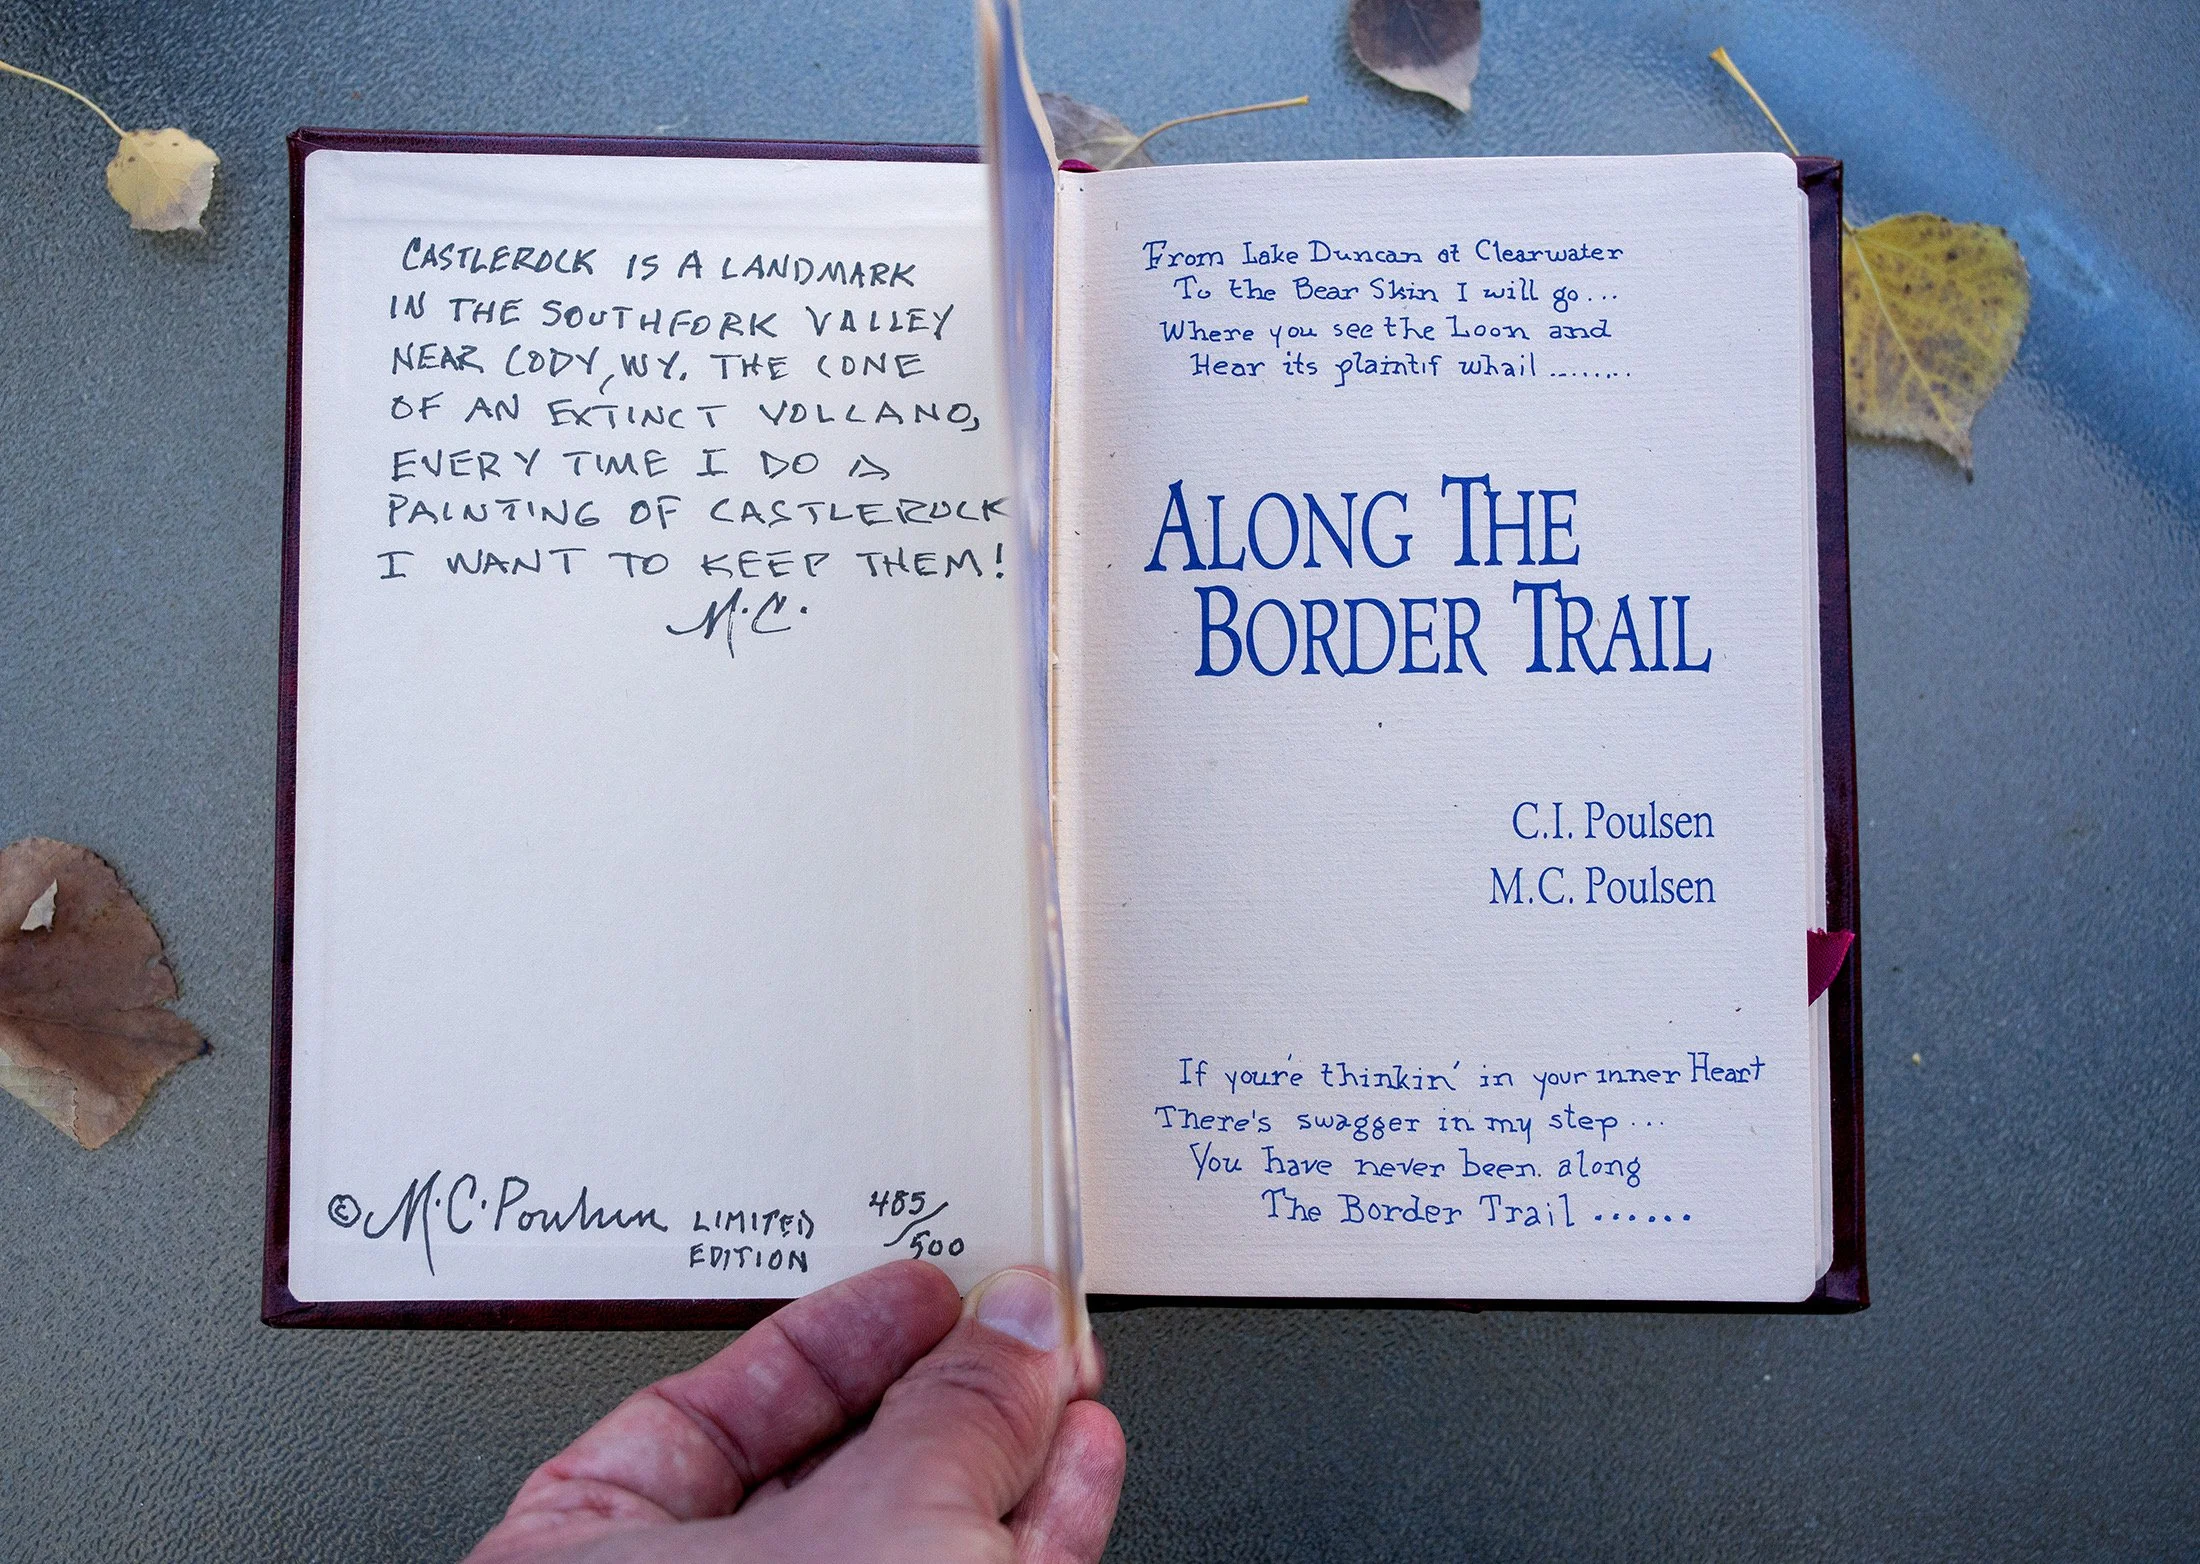 CASTLEROCK IS A LANDMARK
IN THE SOUTHFORK VALLEY
NEAR CODY, WY. THE CONE
OF AN EXTINCT VOLCANO,
EVERY TIME I DO A
PAINTING OF CASTLEROCK
I WANT TO KEEP THEM!
M.C.
© M.C. Poulsen LIMITED EDITION 485/500
From Lake Duncan at Clearwater
To the Bear Skin I will go...
Where you see the Loon and
Hear its plaintif whail ........
ALONG THE
BORDER TRAIL
C.I. Poulsen
M.C. Poulsen
If you're thinkin' in your inner Heart
There's swagger in my step...
You have never been along
The Border Trail ......